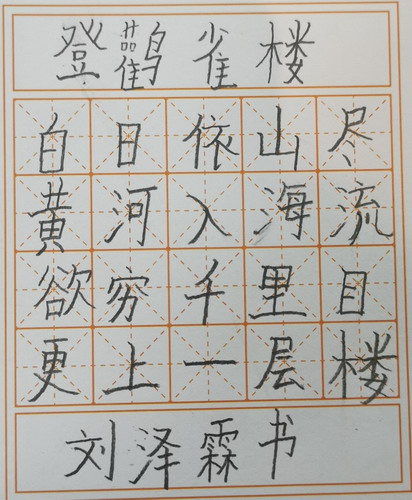 登鹳雀楼
白日依山尽
黄河入海流
欲穷千里目
更上一层楼
刘泽霖书